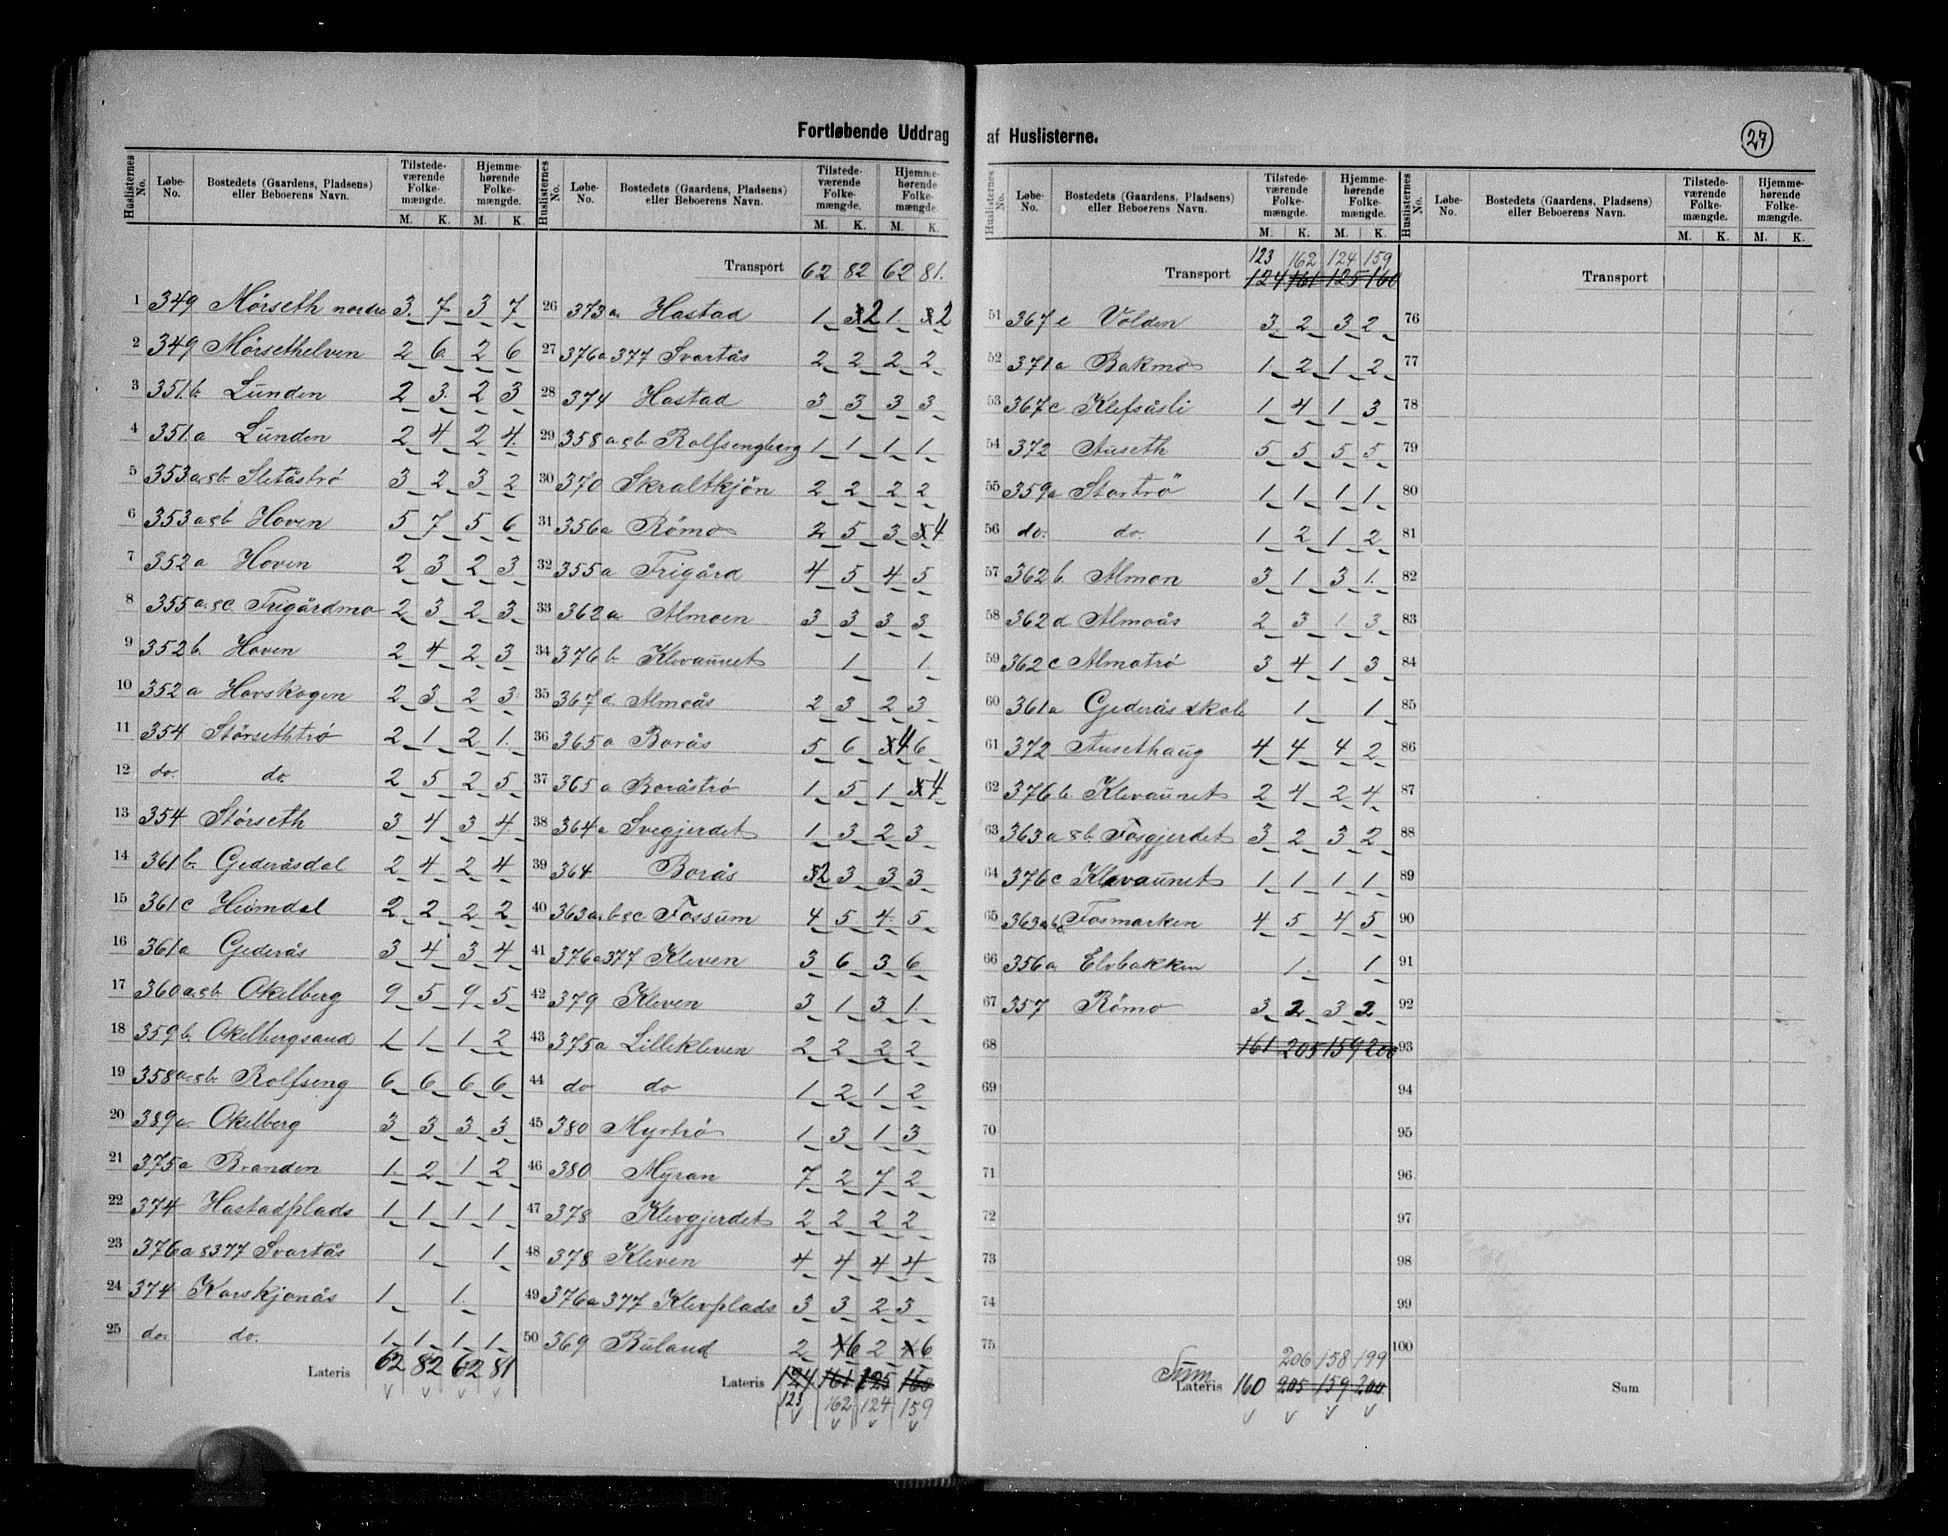 Fortløbende Uddrag af Huslisterne.
27
Huslisternes No. Løbe-No. Bostedets (Gaardens, Pladsens) eller Beboerens Navn. Tilstedeværende Folkemængde. M. K. Hjemmehørende Folkemængde. M. K.
1 349 Mørseth nordre 3 7 3 7
2 349 Mørsethelven 2 6 2 6
3 351 b Lunden 2 3 2 3
4 351 a Lunden 2 4 2 4
5 353 a & b Sletåstrø 3 2 3 2
6 353 a & b Hoven 5 7 5 6
7 352 a Hoven 2 3 2 3
8 355 a & c Trigårdmo 2 3 2 3
9 352 b Hoven 2 4 2 3
10 352 a Hovskogen 2 3 2 3
11 354 Størsethtrø 2 1 2 1
12 do. do. 2 5 2 5
13 354 Størseth 3 4 3 4
14 361 b Gederåsdal 2 4 2 4
15 361 c Heimdal 2 2 2 2
16 361 a Gederås 3 4 3 4
17 360 a & b Okelberg 9 5 9 5
18 359 b Okelbergsaud 1 1 1 2
19 358 a & b Rolfseng 6 6 6 6
20 389 a Okelberg 3 3 3 3
21 375 a Branden 1 2 1 2
22 374 Hastadplads 1 1 1 1
23 376 a & 377 Svartås 1 1
24 374 Korskjønås 1 1
25 do. do. 1 1 1 1
Lateris 62 82 62 81
Huslisternes No. Løbe-No. Bostedets (Gaardens, Pladsens) eller Beboerens Navn. Tilstedeværende Folkemængde. M. K. Hjemmehørende Folkemængde. M. K.
Transport 62 82 62 81
26 373 a Hastad 1 2 1 2
27 376 a 377 Svartås 2 2 2 2
28 374 Hastad 3 3 3 3
29 358 a & b Rolfsengberg 1 1 1 1
30 370 Skraltkjøn 2 2 2 2
31 356 a Rømo 2 5 3 4
32 355 a Trigård 4 5 4 5
33 362 a Almoen 3 3 3 3
34 376 b Klevaunet 1 1
35 367 d Almoås 2 3 2 3
36 365 a Borås 5 6 4 6
37 365 a Boråstrø 1 5 1 4
38 364 a Svegjerdet 1 3 2 3
39 364 Borås 2 3 3 3
40 363 a b & c Fossum 4 5 4 5
41 376 a 377 Kleven 3 6 3 6
42 379 Kleven 3 1 3 1
43 375 a Lillekleven 2 2 2 2
44 do do 1 2 1 2
45 380 Myrtrø 1 3 1 3
46 380 Myran 7 2 7 2
47 378 Klevgjerdet 2 2 2 2
48 378 Kleven 4 4 4 4
49 376 a 377 Klevplads 3 3 2 3
50 369 Buland 2 6 2 6
Lateris 124 161 125 160
123 162 124 159
Huslisternes No. Løbe-No. Bostedets (Gaardens, Pladsens) eller Beboerens Navn. Tilstedeværende Folkemængde. M. K. Hjemmehørende Folkemængde. M. K.
123 162 124 159
Transport 124 161 125 160
51 367 e Volden 3 2 3 2
52 371 a Bakmo 1 2 1 2
53 367 c Klefsåsli 1 4 1 3
54 372 Auseth 5 5 5 5
55 359 a Stortrø 1 1 1 1
56 do. do. 1 2 1 2
57 362 b Almon 3 1 3 1
58 362 d Almoås 2 3 1 3
59 362 c Almotrø 3 4 1 3
60 361 a Gederås skole 1 1
61 372 Ausethaug 4 4 4 2
62 376 b Klevaunet 2 4 2 4
63 363 a & b Fosgjerdet 3 2 3 2
64 376 c Klevaunet 1 1 1 1
65 363 a b Fosmarken 4 5 4 5
66 356 a Elvbakken 1 1
67 357 Rømo 3 2 3 2
68 161 205 159 200
69
70
71
72
73
74
75
206 158 199
Sum
Lateris 160 205 159 200
Huslisternes No. Løbe-No. Bostedets (Gaardens, Pladsens) eller Beboerens Navn. Tilstedeværende Folkemængde. M. K. Hjemmehørende Folkemængde. M. K.
Transport
76
77
78
79
80
81
82
83
84
85
86
87
88
89
90
91
92
93
94
95
96
97
98
99
100
Sum